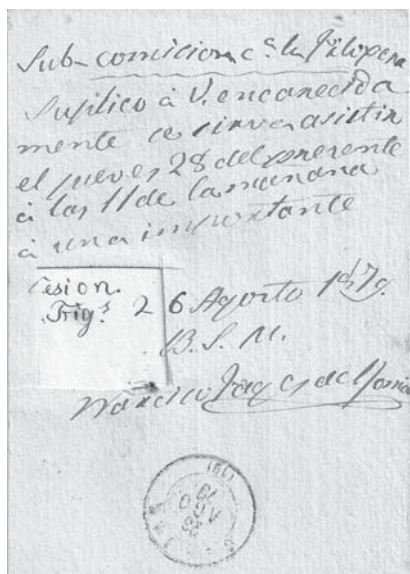 Sub-comicion cª la Filopera
Suplico à V. encarecida
mente se sirva asistir
el jueves 28 del presente
à las 11 de la manana
à una importante
Cesion.
Frigˢ 26 Agosto 1879.
B. S. M.
Narciso Fages de